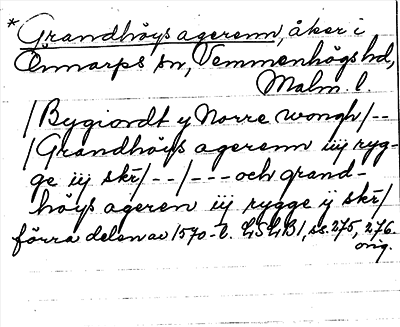 * Grandhöys agerenn, åker i
Önnarps sn, Vemmenhögs hd,
Malm. l.
/Bygiordt y Norre wongh/--
/Grandhöys agerenn iij ryg-
ge iij skr/--/---och grand-
höys ageren iij rygge ij skr/
förra delen av 1570-t. LSLB1, ss. 275, 276.
orig.